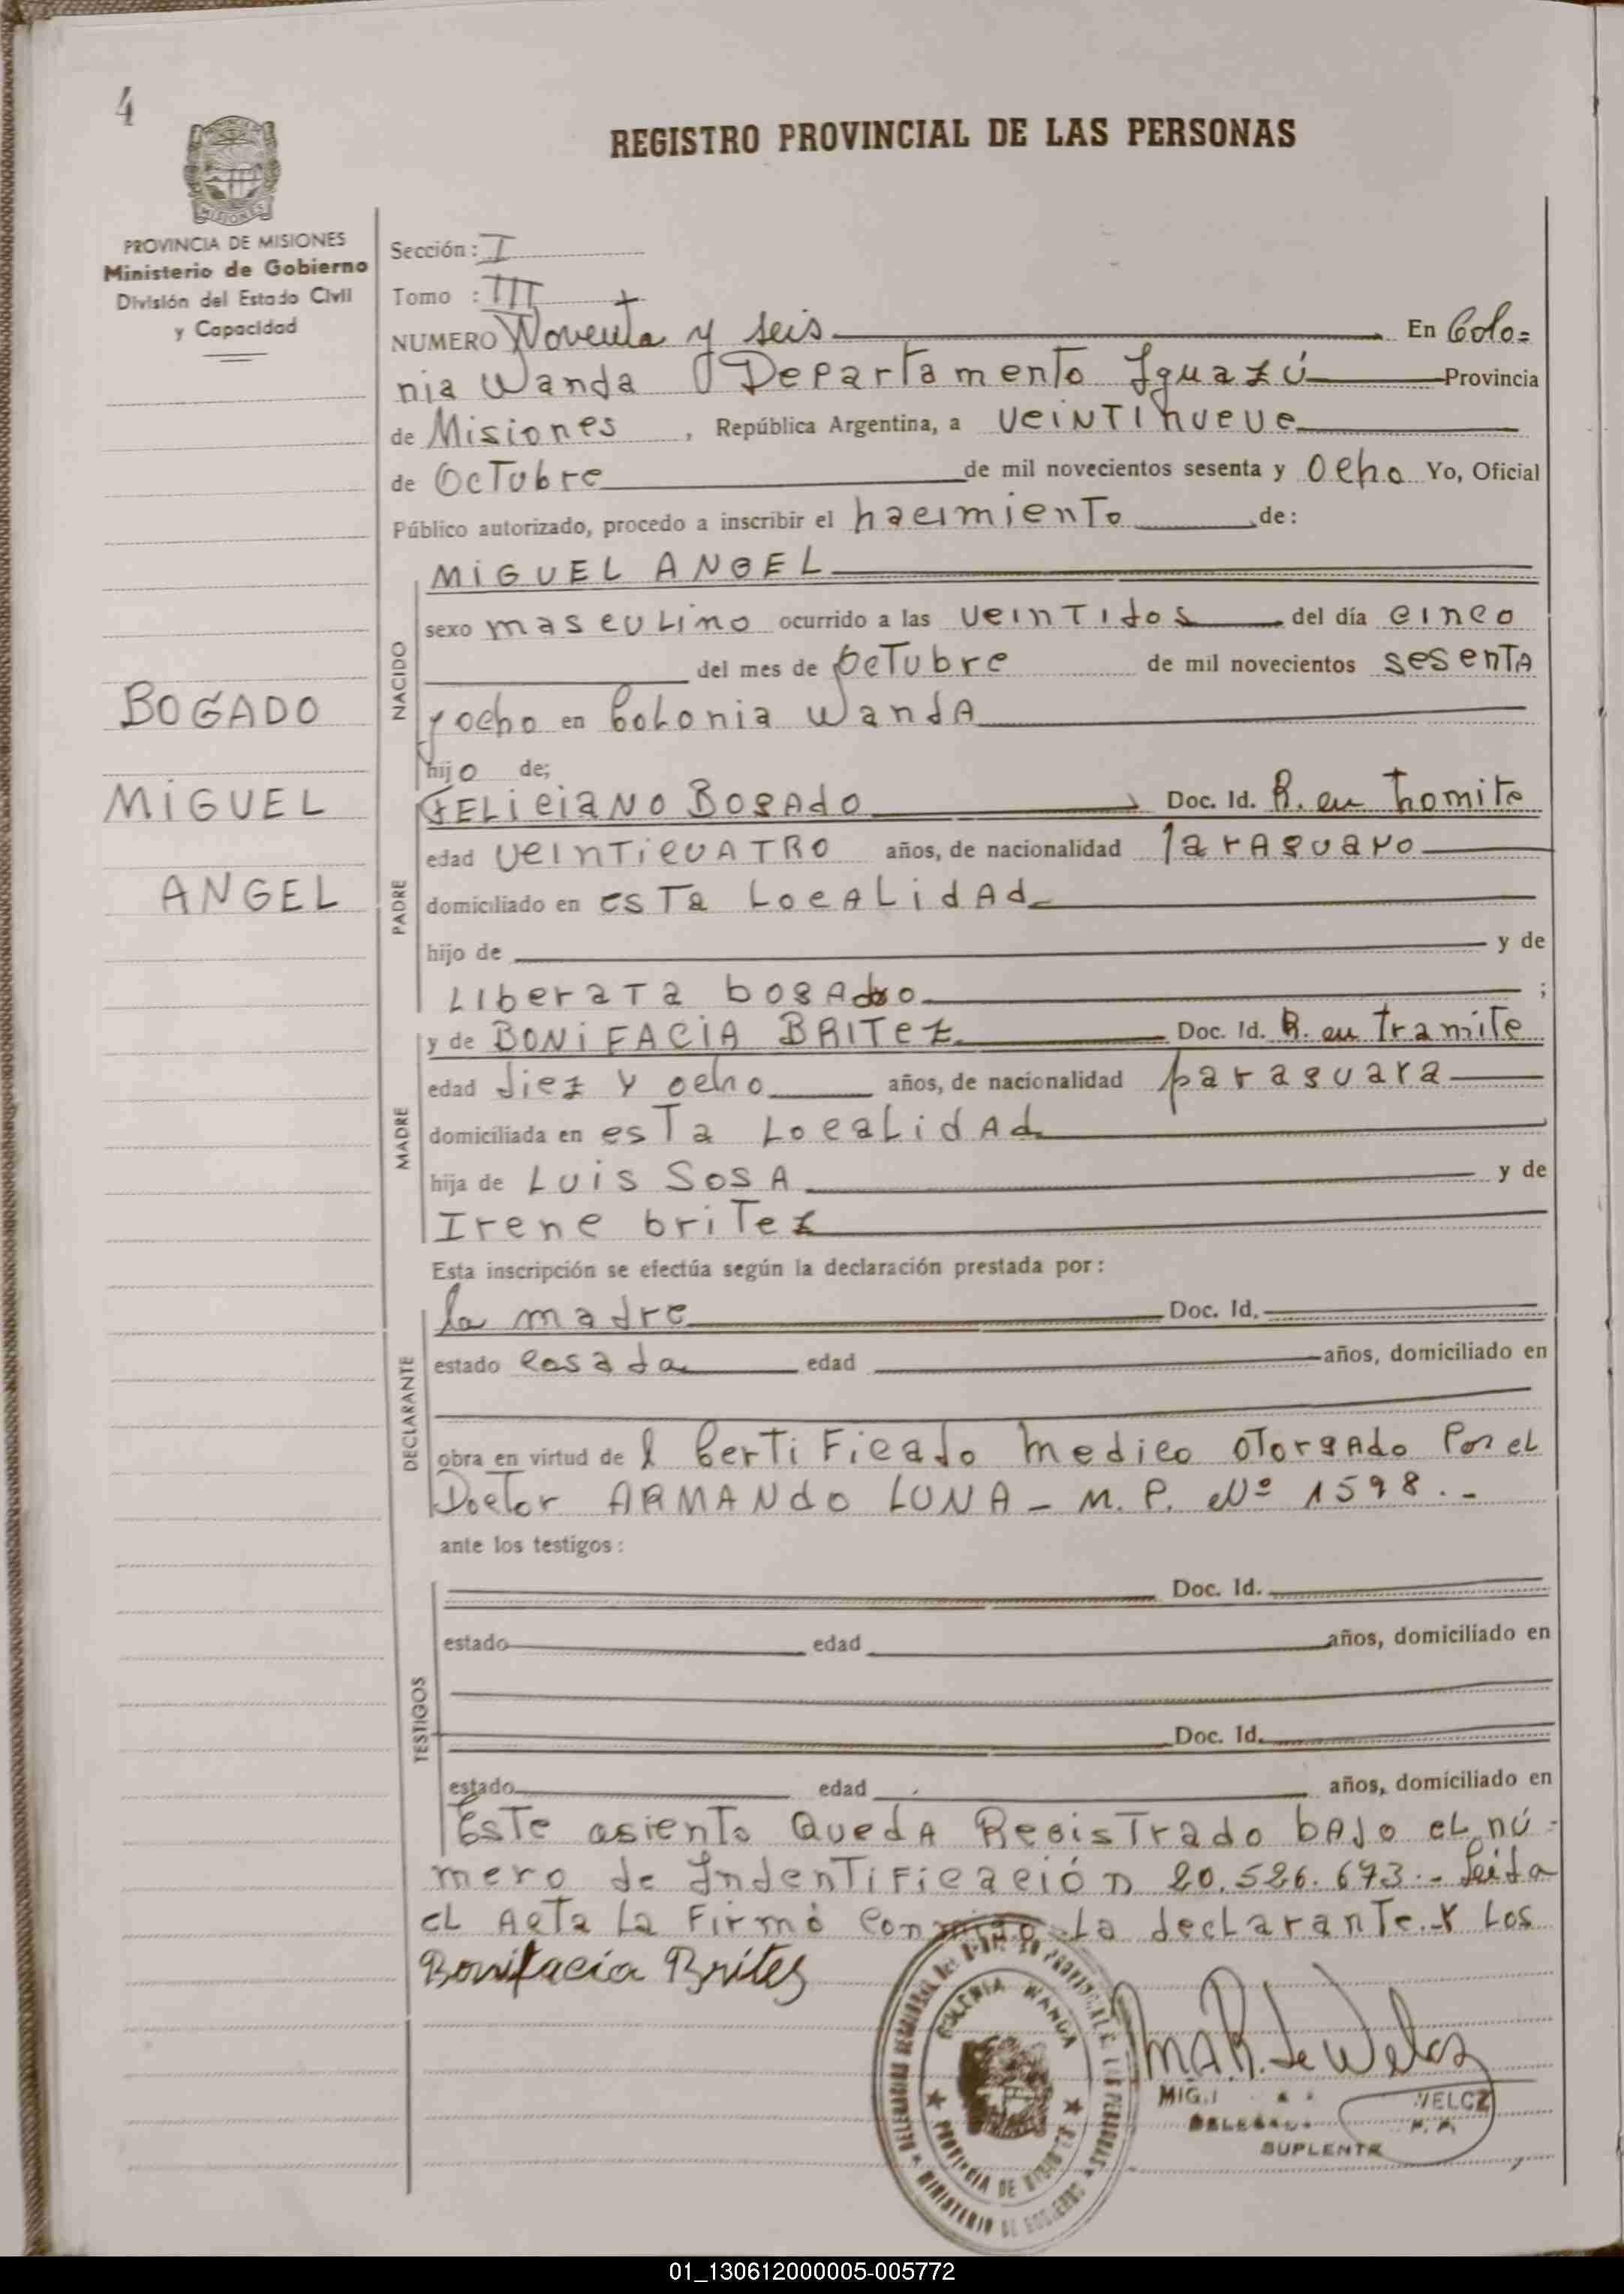 4
REGISTRO PROVINCIAL DE LAS PERSONAS
PROVINCIA DE MISIONES
Ministerio de Gobierno
División del Estado Civil
y Capacidad
BOGADO
MIGUEL
ANGEL
Sección: I
Tomo : III
NUMERO Noventa y seis En Colo=
nia Wanda Departamento Iguazú Provincia
de Misiones, República Argentina, a veintinueve
de Octubre de mil novecientos sesenta y Ocho Yo, Oficial
Público autorizado, procedo a inscribir el nacimiento de:
NACIDO
MIGUEL ANGEL
sexo masculino ocurrido a las veintidos del día cinco
del mes de Octubre de mil novecientos sesenta
y ocho en Colonia Wanda
hijo de;
PADRE
FELICIANO BOGADO Doc. Id. R. en tramite
edad veinticuatro años, de nacionalidad Paraguayo
domiciliado en esta Localidad
hijo de y de
Liberata bogado ;
MADRE
y de BONIFACIA BRITEZ Doc. Id. R. en tramite
edad diez y ocho años, de nacionalidad paraguaya
domiciliada en esta Localidad
hija de Luis Sosa y de
Irene britez
Esta inscripción se efectúa según la declaración prestada por:
DECLARANTE
la madre Doc. Id.
estado casada edad años, domiciliado en
obra en virtud de l Certificado medico otorgado Por el
Doctor ARMANDO LUNA - M. P. Nº 1598.-
ante los testigos:
TESTIGOS
Doc. Id.
estado edad años, domiciliado en
Doc. Id.
estado edad años, domiciliado en
Este asiento queda Registrado bajo el nú-
mero de Indentificación 20.526.673.- Leída
el Acta la Firmó conmigo la declarante y los
Bonifacia Brites
COLONIA WANDA
PROVINCIA DE MISIONES
MINISTERIO DE GOBIERNO
VELOZ
SUPLENTE
01_130612000005-005772